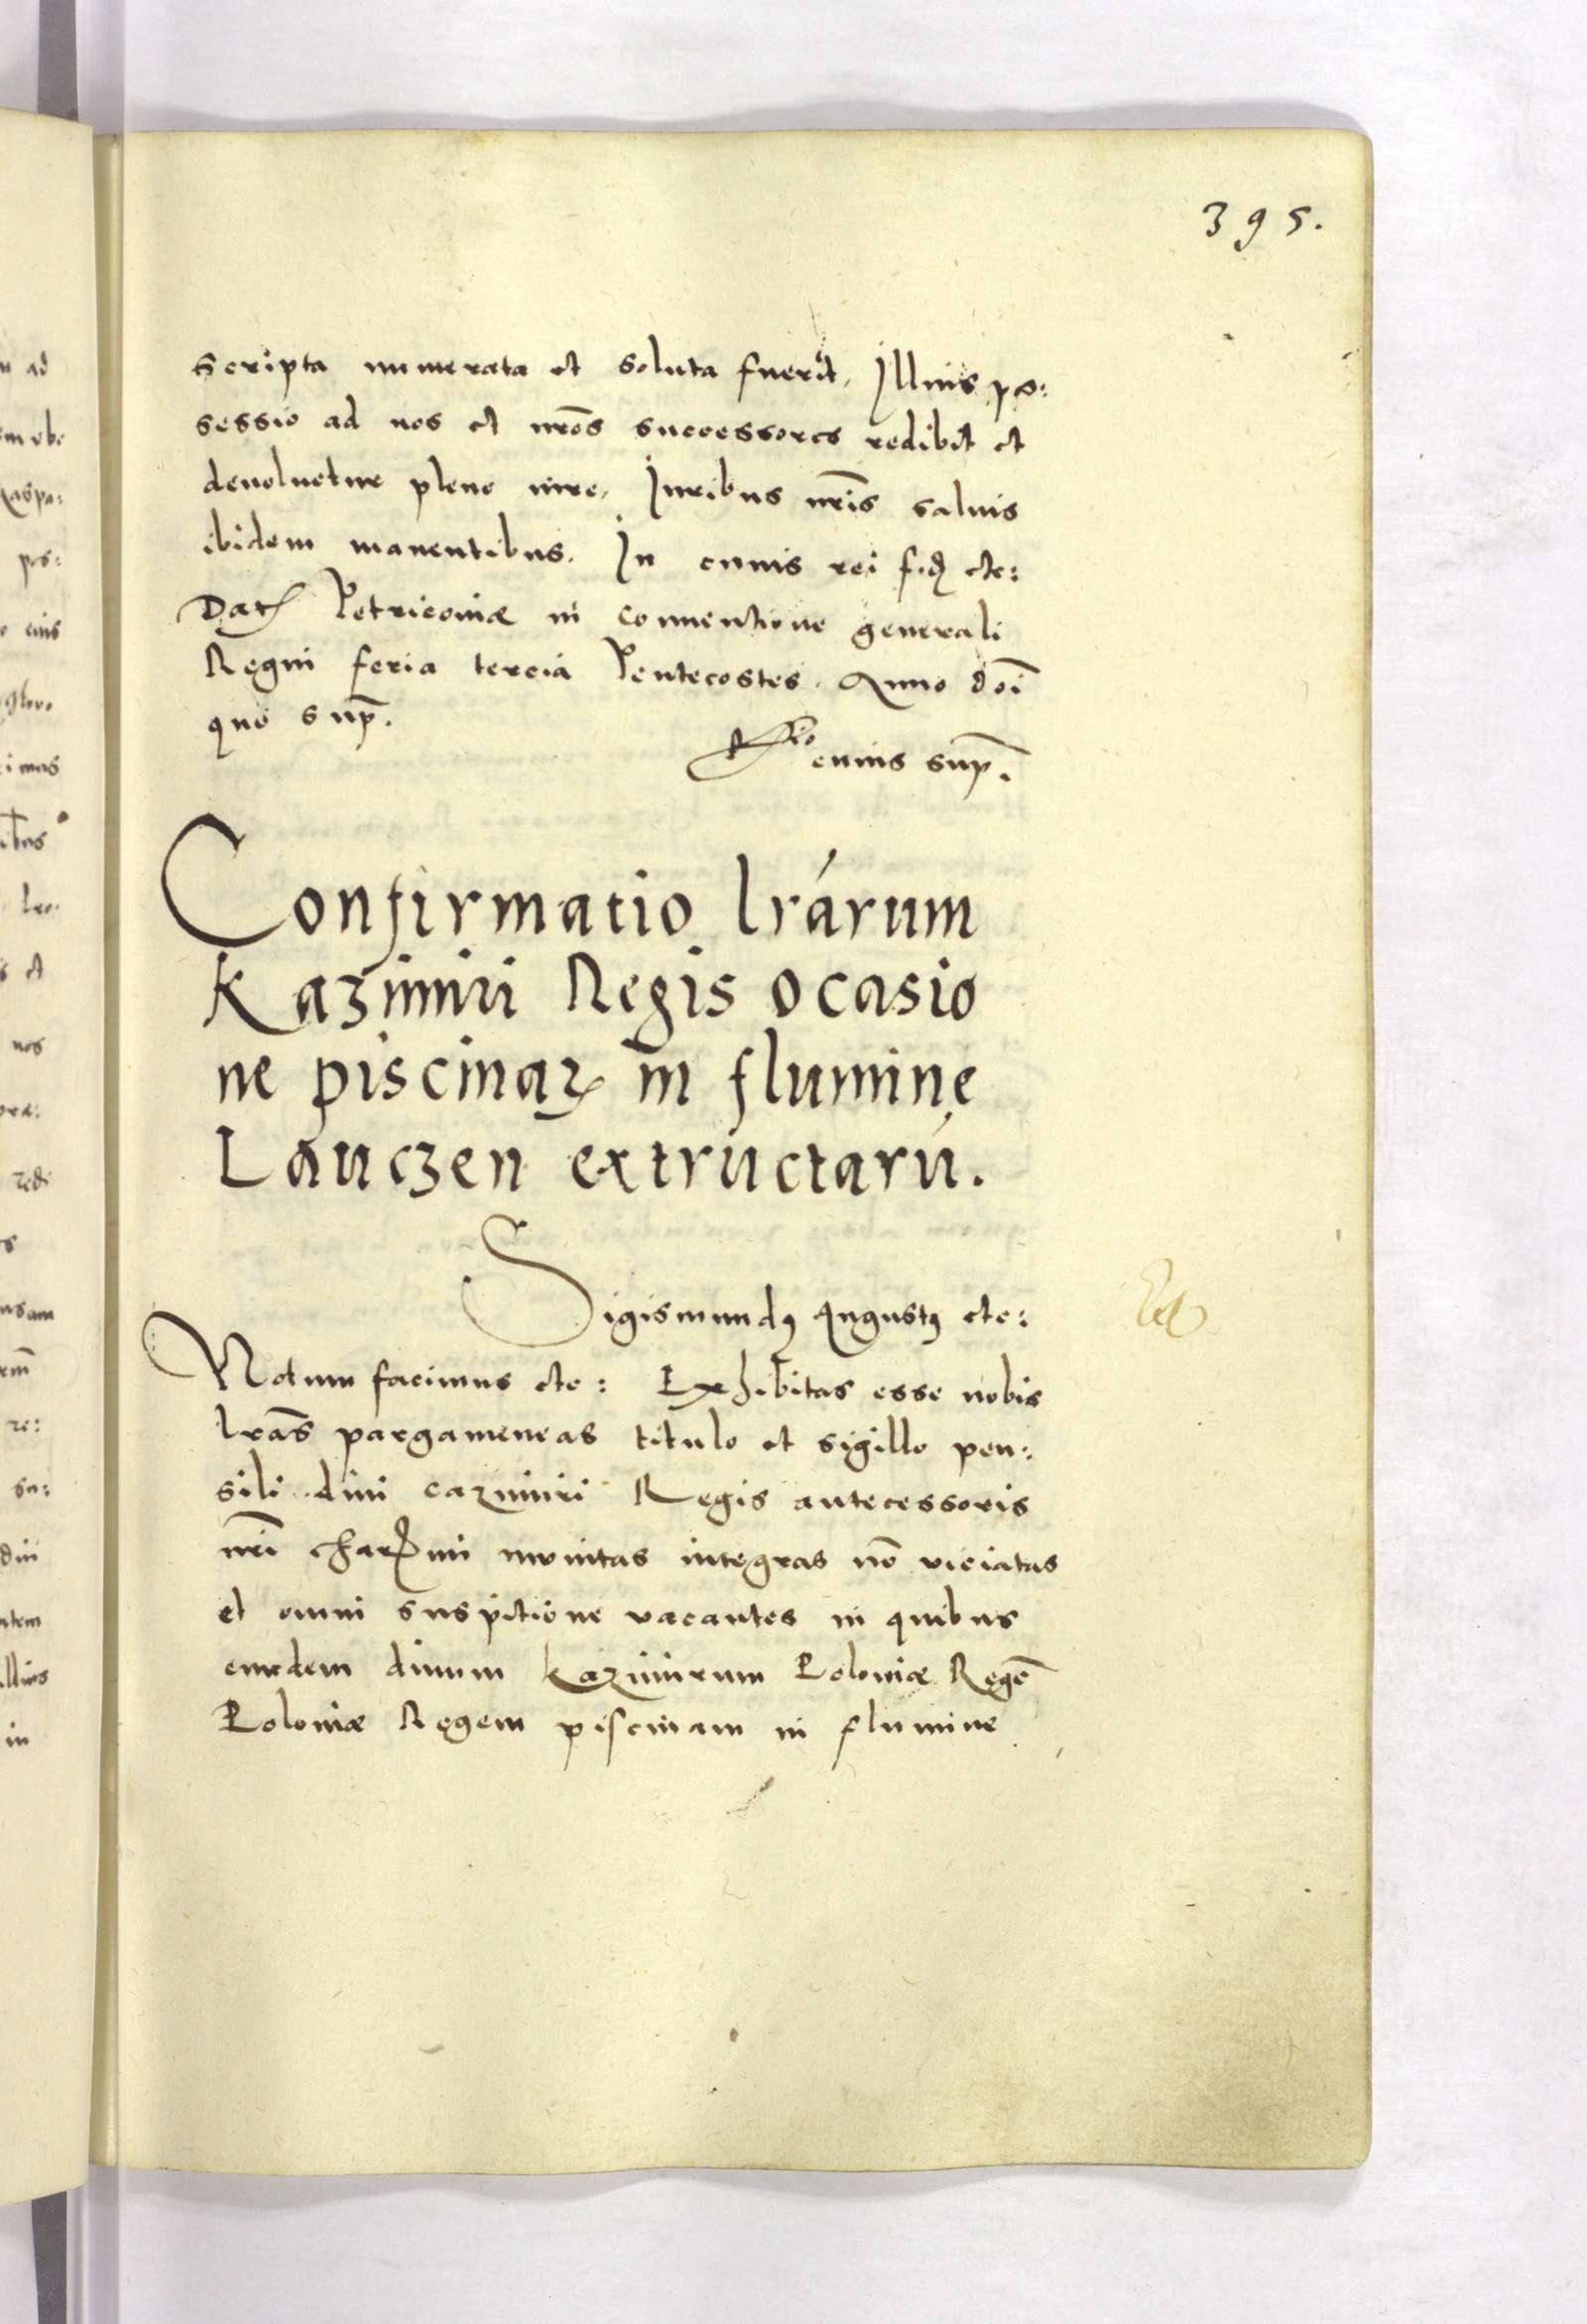 395.
scripta numerata et soluta fuerit, Illius pos:
sessio ad nos et nr̃os successores redibit et
deuoluetur pleno iure, Iuribus nr̃is saluis
ibidem manentibus. In cuius rei fid etc:
Dat Petricouiæ in conuentione generali
Regni feria tercia Pentecostes. Anno doi
quo sup̃.
Rlo cuius sup̃.
Confirmatio lrárum
Kazimiri Regis ocasio
ne piscinaꝝ in flumine
Lanczen extructarū.
Sigismundꝰ Augustꝰ etc:
Notum facimus etc: Exhibitas esse nobis
lrãs pargameneas titulo et sigillo pen:
sili diui cazimiri Regis antecessoris
nr̃i charmi munitas integras nõ viciatas
et omni suspitione vacantes in quibus
eundem diuum kazimirum Poloniæ Regẽ
Poloniæ Regem piscinam in flumine